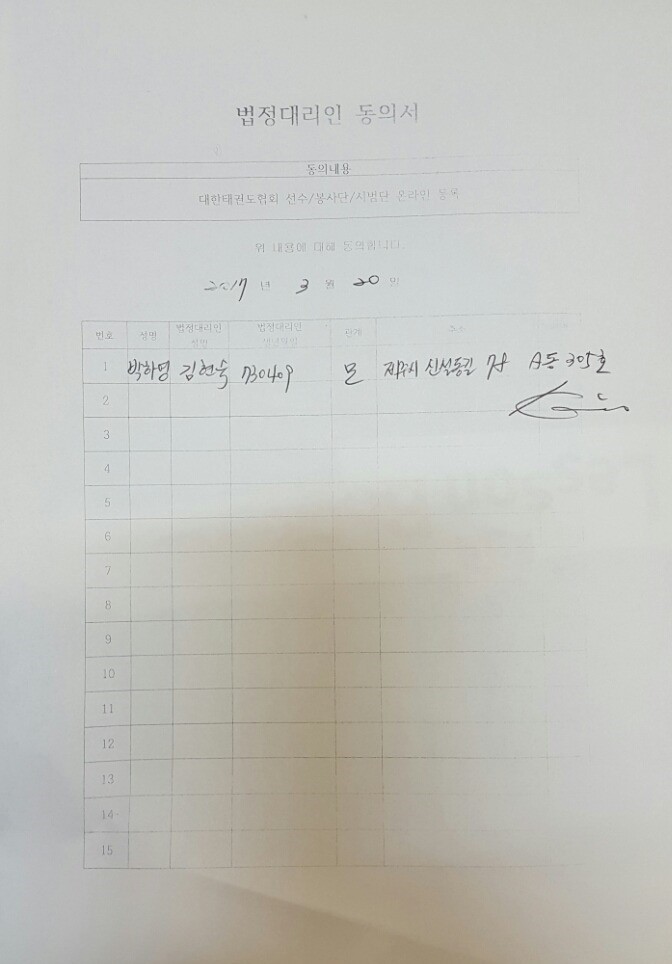 법정대리인 동의서
동의내용
대한태권도협회 선수/봉사단/시범단 온라인 등록
위 내용에 대해 동의합니다.
2017 년 3 월 20 일
번호 성명 법정대리인 성명 법정대리인 생년월일 관계 주소
1 박하영 김현숙 730409 모 제주시 신설동길 A동 305호
2
3
4
5
6
7
8
9
10
11
12
13
14
15